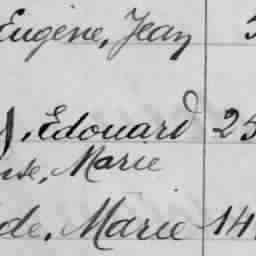 Eugène, Jean 5
, Edouard 25
se, Marie
de, Marie 14